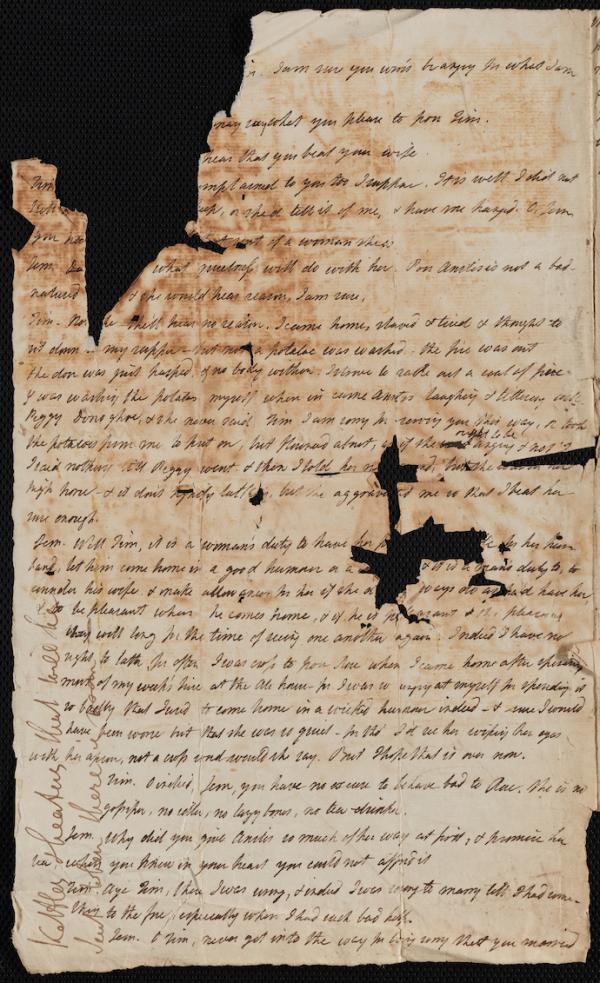 I am sure you won't be angry for what I am
may say what you please to poor Tim.
hear that you beat your wife.
Tim complained to you too I suppose. It is well I did not
or she'd tell it of me, & have me hanged. O, Jem
you out of a woman she is
Jem. what mildness will do with her. Poor Anstis is not a bad-
natured & she would hear reason, I am sure.
Tim. She'll hear no reason. I came home, slaved & tired & thought to
sit down to my supper - but not a potatoe was washed. the fire was out
the door was just hasped, & no body within. I strove to rake out a coal of fire
I was washing the potatoes myself when in came Anstis laughing & tittering with
Peggy Donoghoe, & she never said Tim I am sorry for serving you this way, or took
the potatoes from me to put on, but flounced about, as if she had right to be angry & not I
I said nothing till Peggy went & then I told her but she her
high horse - & it don't signify talking, but she aggravated me so that I beat her
sure enough.
Jem. Well Tim, it is a woman's duty to have her for her hus-
band, let him come home in a good humour or a & it is a man's duty to, to
consider his wife, & make allowances for her if she do always do as he'd have her,
& to be pleasant when he comes home, & if he is pleasant & she pleasing
they will long for the time of seeing one another again. Indeed I have no
right to talk for often I was cross to poor Rose when I came home after spending
most of my week's hire at the Ale house - for I was so angry at myself for spending it
so badly that I used to come home in a wicked humour indeed - & sure I would
have been worse but that she was so quiet - for tho' I'd see her wiping her eyes
with her apron, not a cross word would she say. But I hope that is over now.
Tim. O indeed, Jem, you have no excuse to behave bad to Rose. She is no
gossiper, no idler, no lazy bones, no tea-drinker.
Jem. Why did you give Anstis so much of her way at first, & promise her
tea when you knew in your heart you could not afford it
Tim. Aye Jem, there I was wrong, & indeed I was wrong to marry till I had some-
thing to the fore, especially when I had such bad help.
Jem. O Tim, never get into the way for being sorry that you married
Kettles & heaters that
here